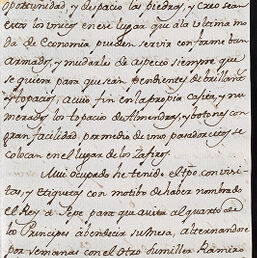 oportunidad, y despacio las piedras, y creo sean
estos los unicos en ese lugar que a la ultima mo
da de Economia pueden servir conforme ban
armados, y mudarles de aspecto siempre que
se quiera para que sean pendientes de brillantes
y topacios, a cuio fin en la propia cajita, ban nu
merados los topacios de Almendras, y botones con
gran facilidad por medio de unos pasadorcitos se
colocan en el lugar de los Zafiros.
Mui ocupado he tenido el tpo con visi
tas, y Etiquetas con motibo de haber nombrado
el Rey à Pepe para que asista al quarto de
los Principes à bendecir su Mesa, alternando
por semanas con el otro Sumiller Ramiro